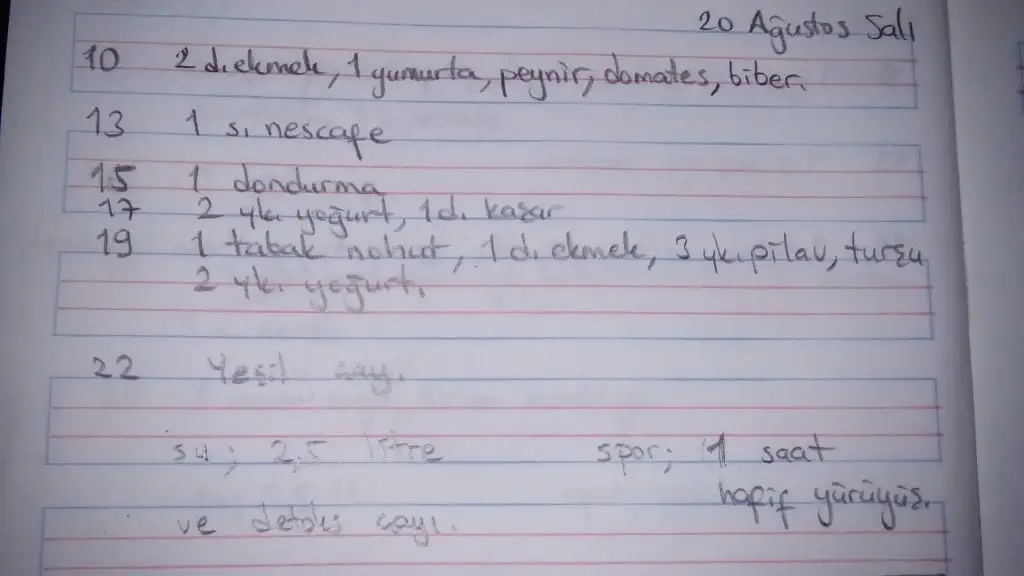 20 Ağustos Salı
10 2 d. ekmek, 1 yumurta, peynir, domates, biber.
13 1 s. nescafe
15 1 dondurma
17 2 yk. yoğurt, 1 d. kaşar
19 1 tabak nohut, 1 d. ekmek, 3 yk. pilav, turşu
2 yk. yoğurt.
22 Yeşil çay.
su; 2,5 litre spor; 1 saat
hafif yürüyüş.
ve detoks çayı.